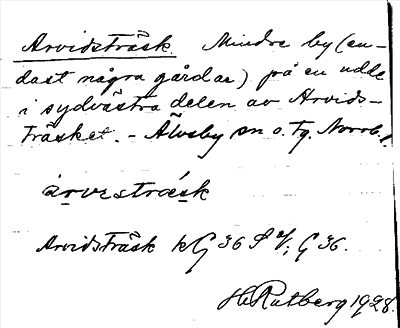 Arvidsträsk. Mindre by (en-
dast några gårdar) på en udde
i sydvästra delen av Arvids-
träsket. - Älvsby sn o. tg. Norrb. l.
arvɩstræsk
Arvidsträsk kG 36 S
G 36.
H. Rutberg 1928.